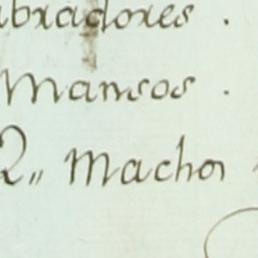 abradores .
Mansos .
2,, Machos